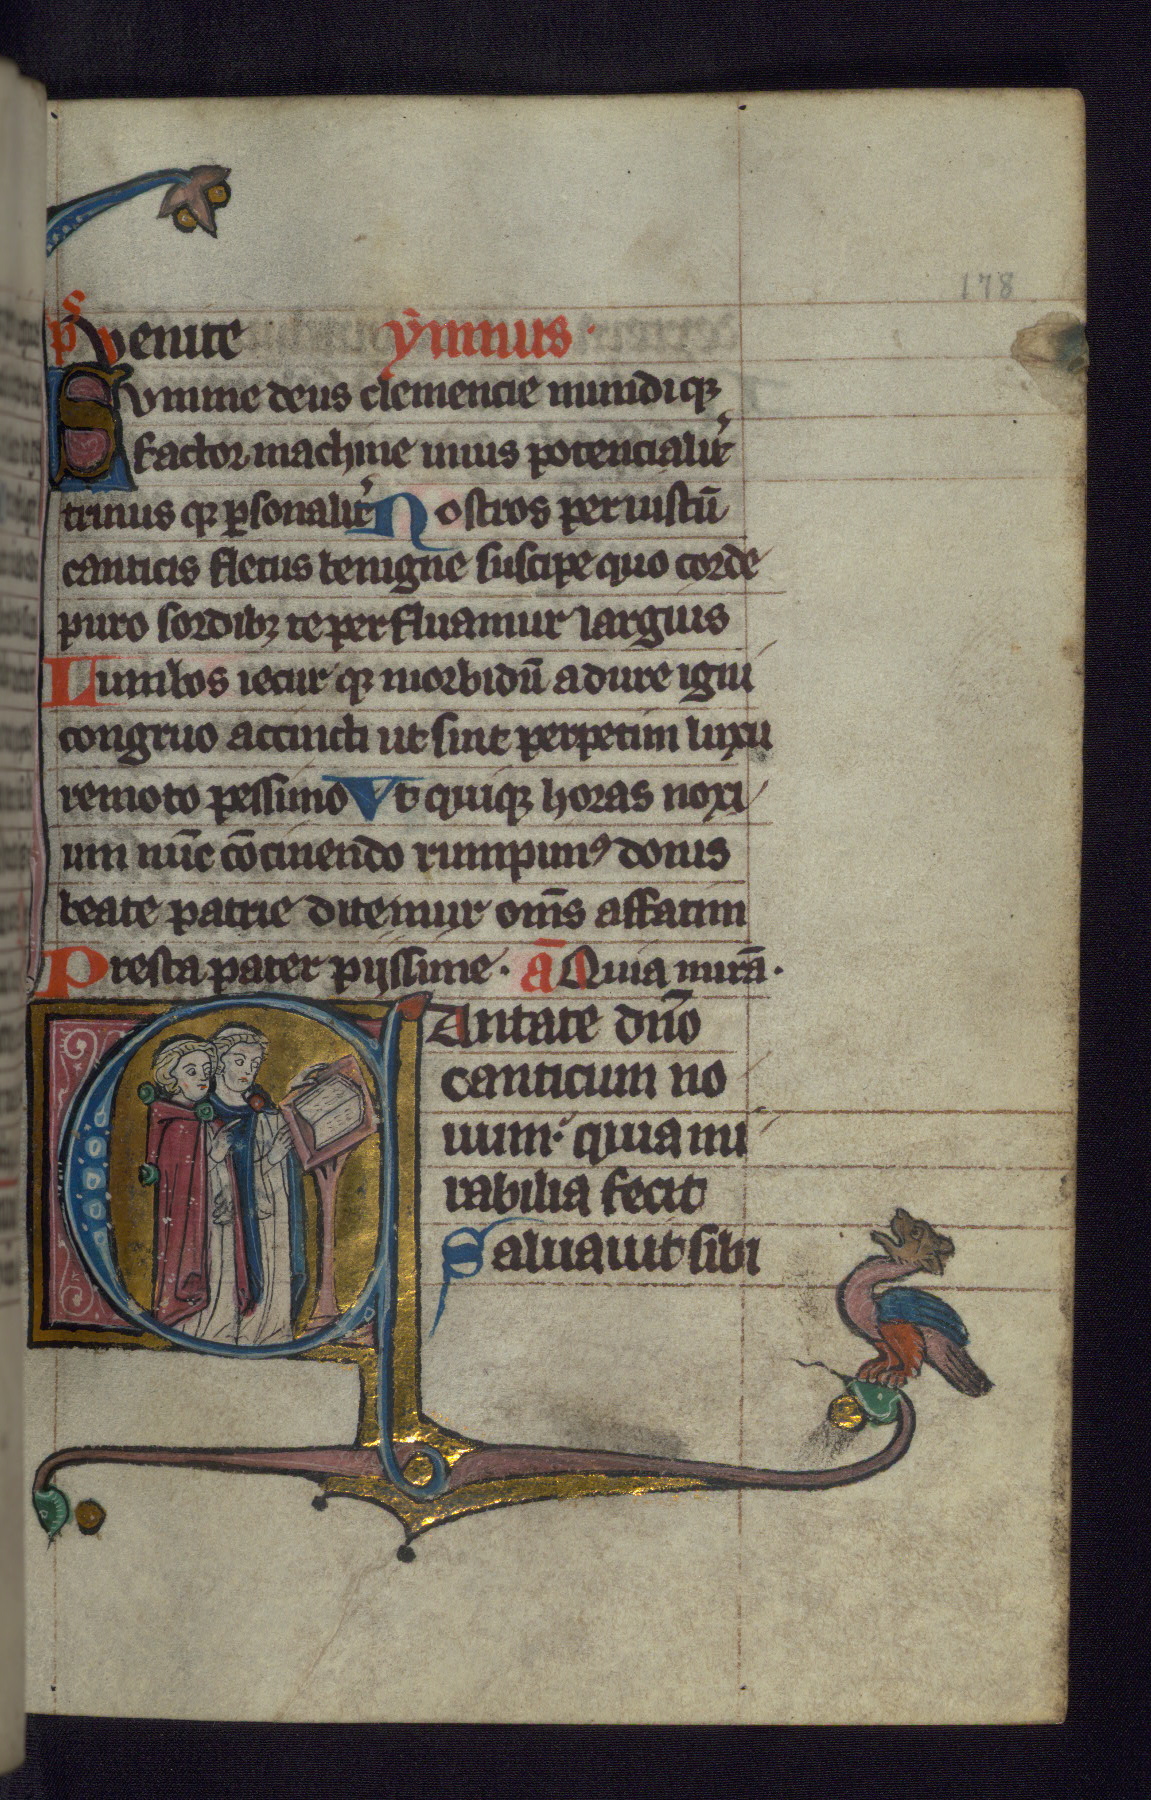 178
p̄s Venite ȳmnus.
Summe deus clemencie mundiqꝫ
factor machine unus potencialit᷑
trinus qꝫ ꝑsonalit᷑ Nostros per iustū
canticis fletus benigne suscipe quo corde
puro sordibꝫ te perfruamur largius
Lumbos iecur qꝫ morbidū adure igni
congruo accincti ut sint perpetim luxu
remoto pessimo Vt quiqꝫ horas noxi
um nūc cōcinendo rumpimꝰ donis
beate patrie ditemur om̄s affatim
Presta pater pijssime. ā Quia mirā.
Cantate dn̄o
canticum no
uum. quia mi
rabilia fecit
Saluauit sibi